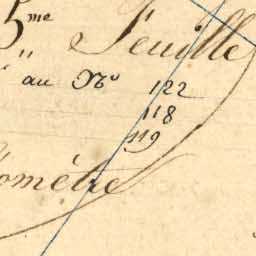 5me Feuille
" au No 122
118
119
omètre